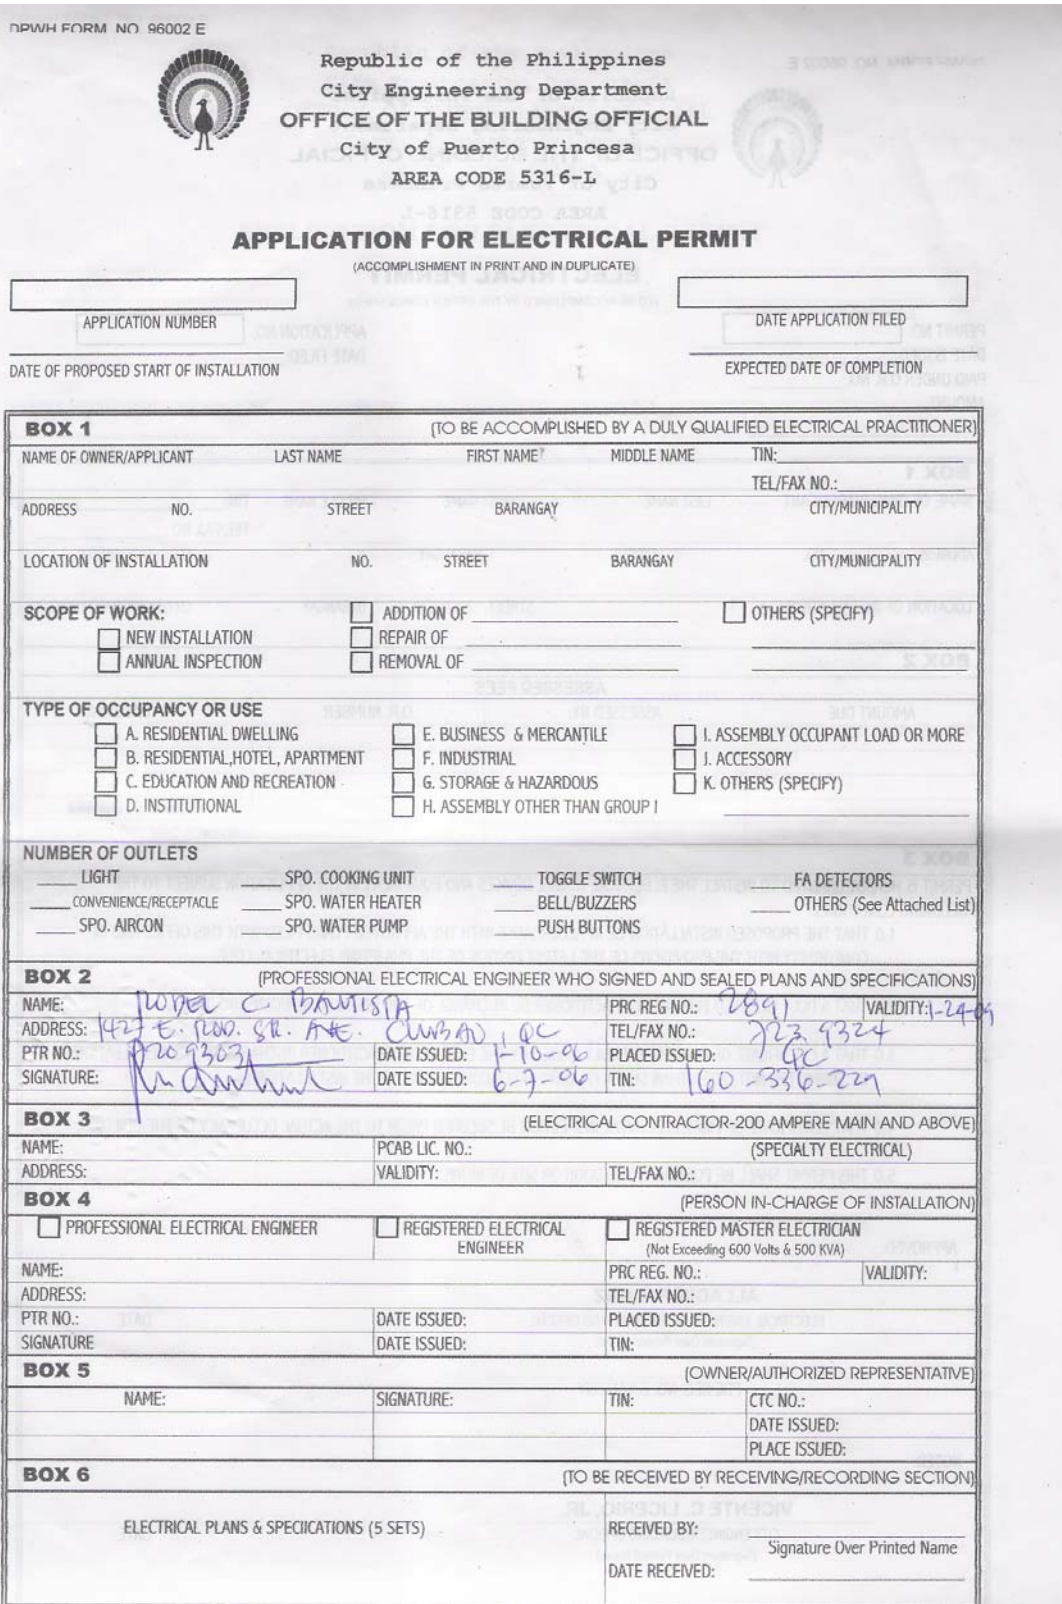 DPWH FORM NO. 96002 E
Republic of the Philippines
City Engineering Department
OFFICE OF THE BUILDING OFFICIAL
City of Puerto Princesa
AREA CODE 5316-L
APPLICATION FOR ELECTRICAL PERMIT
(ACCOMPLISHMENT IN PRINT AND IN DUPLICATE)
APPLICATION NUMBER DATE APPLICATION FILED
DATE OF PROPOSED START OF INSTALLATION EXPECTED DATE OF COMPLETION
BOX 1 (TO BE ACCOMPLISHED BY A DULY QUALIFIED ELECTRICAL PRACTITIONER)
NAME OF OWNER/APPLICANT LAST NAME FIRST NAME MIDDLE NAME TIN:
TEL/FAX NO.:
ADDRESS NO. STREET BARANGAY CITY/MUNICIPALITY
LOCATION OF INSTALLATION NO. STREET BARANGAY CITY/MUNICIPALITY
SCOPE OF WORK: ADDITION OF OTHERS (SPECIFY)
NEW INSTALLATION REPAIR OF
ANNUAL INSPECTION REMOVAL OF
TYPE OF OCCUPANCY OR USE
A. RESIDENTIAL DWELLING E. BUSINESS & MERCANTILE I. ASSEMBLY OCCUPANT LOAD OR MORE
B. RESIDENTIAL,HOTEL, APARTMENT F. INDUSTRIAL J. ACCESSORY
C. EDUCATION AND RECREATION G. STORAGE & HAZARDOUS K. OTHERS (SPECIFY)
D. INSTITUTIONAL H. ASSEMBLY OTHER THAN GROUP I
NUMBER OF OUTLETS
LIGHT SPO. COOKING UNIT TOGGLE SWITCH FA DETECTORS
CONVENIENCE/RECEPTACLE SPO. WATER HEATER BELL/BUZZERS OTHERS (See Attached List)
SPO. AIRCON SPO. WATER PUMP PUSH BUTTONS
BOX 2 (PROFESSIONAL ELECTRICAL ENGINEER WHO SIGNED AND SEALED PLANS AND SPECIFICATIONS)
NAME: RODEL C BAUTISTA PRC REG NO.: 2891 VALIDITY: 1-24-09
ADDRESS: 1427 E. ROD. SR. AVE. CUBAO, QC TEL/FAX NO.: 723 9324
PTR NO.: DATE ISSUED: 1-10-06 PLACED ISSUED: QC
SIGNATURE: DATE ISSUED: 6-7-06 TIN: 160-336-229
BOX 3 (ELECTRICAL CONTRACTOR-200 AMPERE MAIN AND ABOVE)
NAME: PCAB LIC. NO.: (SPECIALTY ELECTRICAL)
ADDRESS: VALIDITY: TEL/FAX NO.:
BOX 4 (PERSON IN-CHARGE OF INSTALLATION)
PROFESSIONAL ELECTRICAL ENGINEER REGISTERED ELECTRICAL REGISTERED MASTER ELECTRICIAN
ENGINEER (Not Exceeding 600 Volts & 500 KVA)
NAME: PRC REG. NO.: VALIDITY:
ADDRESS: TEL/FAX NO.:
PTR NO.: DATE ISSUED: PLACED ISSUED:
SIGNATURE DATE ISSUED: TIN:
BOX 5 (OWNER/AUTHORIZED REPRESENTATIVE)
NAME: SIGNATURE: TIN: CTC NO.:
DATE ISSUED:
PLACE ISSUED:
BOX 6 (TO BE RECEIVED BY RECEIVING/RECORDING SECTION)
ELECTRICAL PLANS & SPECIICATIONS (5 SETS) RECEIVED BY:
Signature Over Printed Name
DATE RECEIVED: